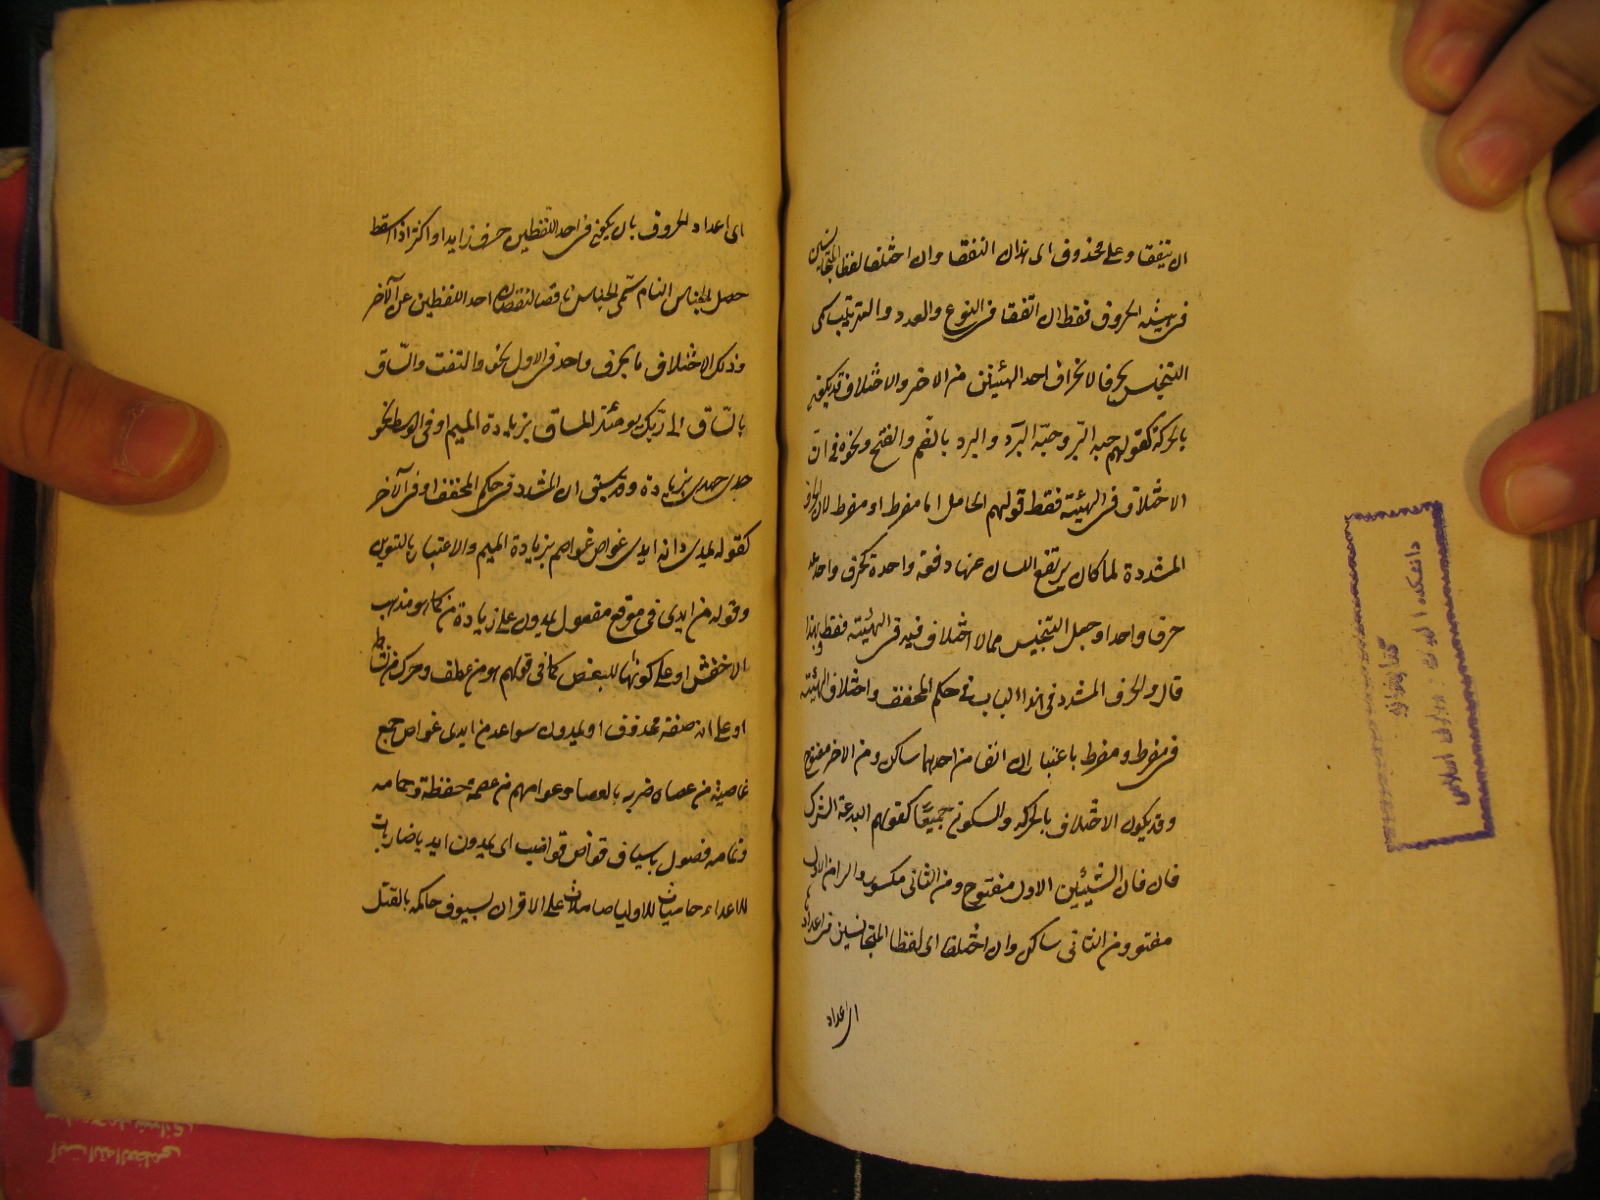 ان يتفقا وعلى محذوف اى هذا ان اتفقا وان اختلفا لفظا المتجانسين
فى هيئة الحروف فقط اى اتفقا فى النوع والعدد والترتيب سمى
التجنيس محرفا لانحراف احد الهيئتين من الاخر والاختلاف قد يكون
بالحركة كقولهم جبة البرد جنة البرد والبرد بالضم والفتح ونحوه فى ان
الاختلاف فى الهيئة فقط قولهم الجاهل اما مفرط او مفرط لان الحرف
المشددة لما كان يرتفع اللسان عنها دفعة واحدة كحرف واحد عد
حرفا واحدا وجعل التجنيس مما لا اختلاف فيه فى الهيئة فقط ولهذا
قال والحرف المشدد فى هذا الباب فى حكم المخفف واختلاف الهيئة
فى مفرط ومفرط باعتبار ان الفا من احدهما ساكن ومن الاخر مفتوح
وقد يكون الاختلاف بالحركة والسكون جميعا كقولهم البدعة الشرك
فان فان الشيئين الاول مفتوح ومن الثانى مكسور والرا من الاول
مفتو ومن الثانى ساكن وان اختلفا اى لفظا المتجانسين فى اعداد
اى اعداد
اى اعداد الحروف بان يكون فى احد اللفظين حرف زايد او اكثر اذا اسقط
حصل الجناس التام سمى الجناس ناقصا لنقصان احد اللفظين عن الآخر
وذلك الاختلاف ما بحرف واحد فى الاول نحو والتفت والساق
بالساق الى ربك يومئذ المساق بزيادة الميم او فى الوسط نحو
جدى جهدى بزيادة وقد سبق ان المشدد فى حكم المخفف او فى الآخر
كقوله يمدون من ايدى عواص عواصم بزيادة الميم والاعتبار بالتنوين
وقوله من ايدى فى موقع مفعول يمدون على زيادة من كما هو مذهب
الاخفش او على كونها للبعض كما فى قولهم هو من عطف وحرك من نشاط
او على انه صفة محذوف اى يمدون سواعد من ايدى عواص جمع
عاصية من عصاه ضربه بالعصا وعواصم من عصمه حفظه وحماه
وتمامه تصول باسياف قواض قواضب اى يمدون ايد ياضاربات
للاعداء حاميات للاوليا صائلات على الاقران بسيوف حاكمة بالقتل